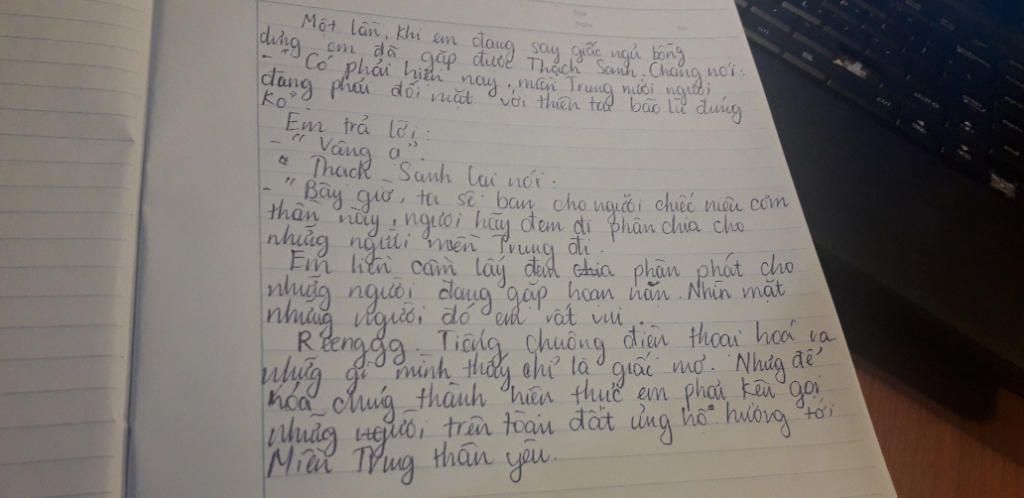 Một lần, khi em đang say giấc ngủ bỗng
dưng em đã gặp được Thạch Sanh. Chàng nói:
- "Có phải hiện nay, miền Trung nươi người
đang phải đối mặt với thiên tai bão lũ đúng
ko".
Em trả lời:
- "Vâng ạ".
Thạch Sanh lại nói:
- "Bây giờ, ta sẽ ban cho người chiếc niêu cơm
thần này, ngươi hãy đem đi phân chia cho
những người miền Trung đi.
Em liền cầm lấy đem chia phân phát cho
những người đang gặp hoạn nạn. Nhìn mặt
những người đó em rất vui.
Reengggg. Tiếng chuông điện thoại hoá ra
những gì mình thấy chỉ là giấc mơ. Nhưg để
hóa chúg thành hiện thực em phải kêu gọi
những người trên toàn đất ủng hộ hướng tới
Miền Trung thân yêu.